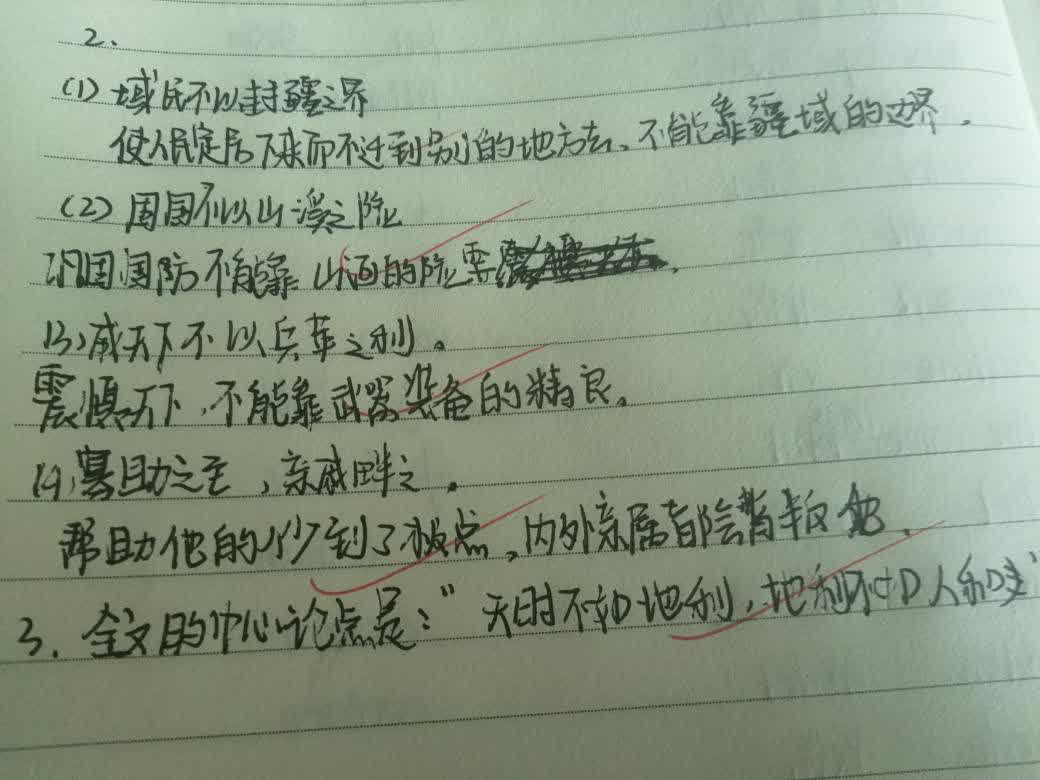 2、
(1) 域民不以封疆之界
使人民定居下来而不迁到别的地方去、不能靠疆域的边界.
(2) 固国不以山溪之险
巩固国防不能靠山河的险要
(3) 威天下不以兵革之利。
震慑天下,不能靠武器装备的精良。
(4) 寡助之至,亲戚畔之。
帮助他的人少到了极点,内外亲属都会背叛他.
3. 全文的中心论点是:"天时不如地利,地利不如人和"